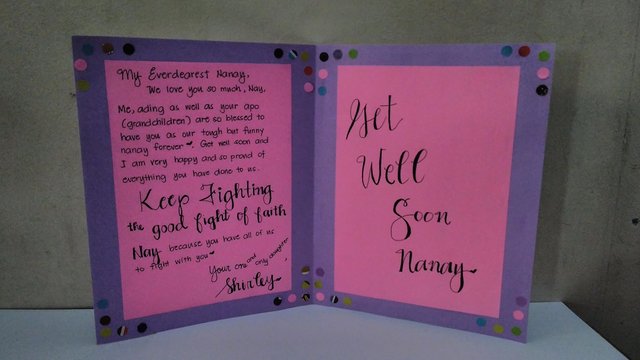 My Everdearest Nanay,
We love you so much, Nay.
Me, ading as well as your apo
(grandchildren) are so blessed to
have you as our tough but funny
nanay forever. Get well soon and
I am very happy and so proud of
everything you have done to us.
Keep Fighting
the good fight of faith
Nay because you have all of us
to fight with you
Your one and only daughter,
Shirley
Get
Well
Soon
Nanay